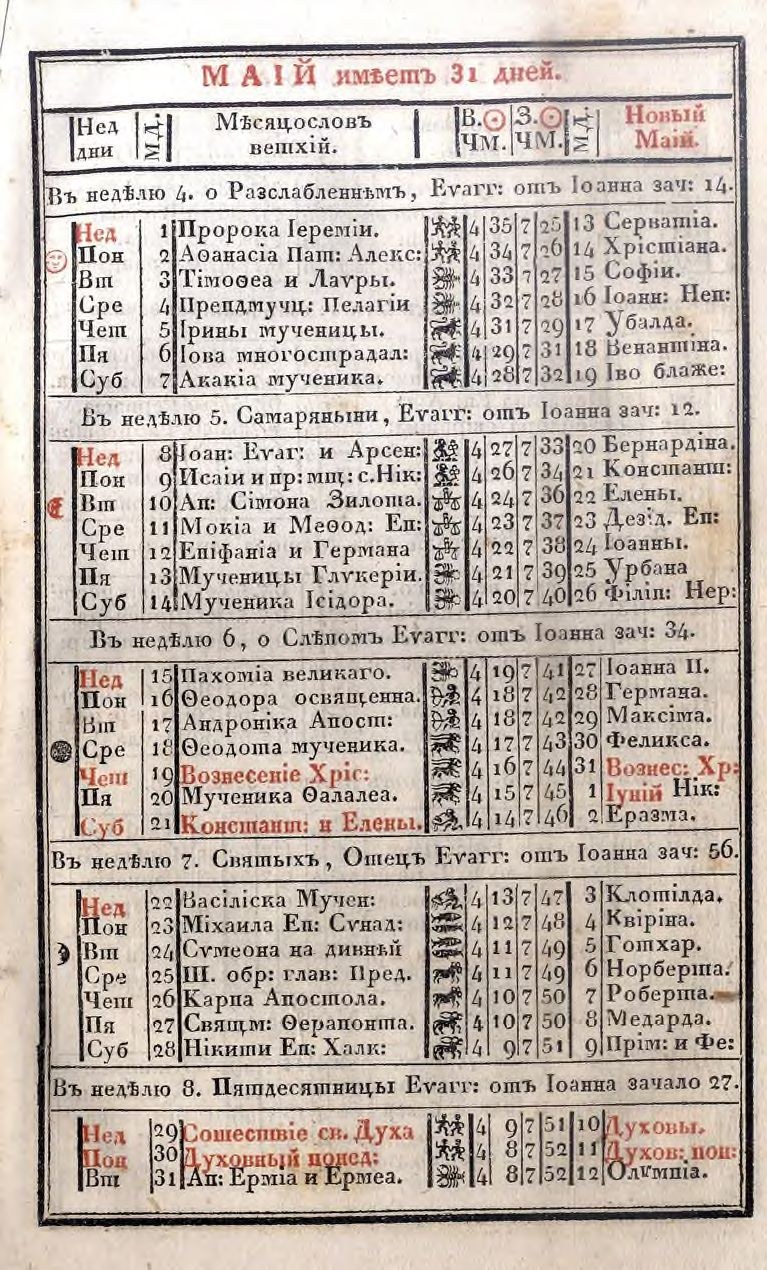 МАІЙ имѣетъ 31 дней.
Нед дни М.Д. Мѣсяцословъ ветхій. В.☉ ЧМ. З.☉ ЧМ. М.Д. Новый Маій.
Въ недѣлю 4. о Разслабленнѣмъ, Еѵагг: отъ Іоанна зач: 14.
Нед 1 Пророка Іереміи. 4 35 7 25 13 Серватіа.
Пон 2 Аѳанасіа Пат: Алекс: 4 34 7 26 14 Хрістіана.
Вт 3 Тімоѳеа и Лаѵры. 4 33 7 27 15 Софіи.
Сре 4 Препдмучц: Пелагіи 4 32 7 28 16 Іоанн: Неп:
Чет 5 Ірины мученицы. 4 31 7 29 17 Убалда.
Пя 6 Іова многострадал: 4 29 7 31 18 Венантіна.
Суб 7 Акакіа мученика. 4 28 7 32 19 Іво блаже:
Въ недѣлю 5. Самаряныни, Еѵагг: отъ Іоанна зач: 12.
Нед 8 Іоан: Еѵаг: и Арсен: 4 27 7 33 20 Бернардіна.
Пон 9 Исаіи и пр: мщ: с. Нік: 4 26 7 34 21 Констант:
Вт 10 Ап: Сімона Зилота. 4 24 7 36 22 Елены.
Сре 11 Мокіа и Меѳод: Еп: 4 23 7 37 23 Дезід. Еп:
Чет 12 Епіфаніа и Германа 4 22 7 38 24 Іоанны.
Пя 13 Мученицы Глѵкеріи. 4 21 7 39 25 Урбана
Суб 14 Мученика Ісідора. 4 20 7 40 26 Філіп: Нер:
Въ недѣлю 6, о Слѣпомъ Еѵагг: отъ Іоанна зач: 34.
Нед 15 Пахоміа великаго. 4 19 7 41 27 Іоанна II.
Пон 16 Ѳеодора освященна. 4 18 7 42 28 Германа.
Вт 17 Андроніка Апост: 4 18 7 42 29 Максіма.
Сре 18 Ѳеодота мученика. 4 17 7 43 30 Феликса.
Чет 19 Вознесеніе Хріс: 4 16 7 44 31 Вознес: Хр:
Пя 20 Мученика Ѳалалеа. 4 15 7 45 1 Іуній Нік:
Суб 21 Констант: и Елены. 4 14 7 46 2 Еразма.
Въ недѣлю 7. Святыхъ, Отецъ Еѵагг: отъ Іоанна зач: 56.
Нед 22 Васіліска Мучен: 4 13 7 47 3 Клотілда.
Пон 23 Міхаила Еп: Сѵнад: 4 12 7 48 4 Квіріна.
Вт 24 Сѵмеона на дивнѣй 4 11 7 49 5 Готхар.
Сре 25 III. обр: глав: Пред. 4 11 7 49 6 Норберта.
Чет 26 Карпа Апостола. 4 10 7 50 7 Роберта.
Пя 27 Свящм: Ѳерапонта. 4 10 7 50 8 Медарда.
Суб 28 Нікиты Еп: Халк: 4 9 7 51 9 Прім: и Фе:
Въ недѣлю 8. Пятдесятницы Еѵагг: отъ Іоанна зачало 27.
Нед 29 Сошествіе св. Духа 4 9 7 51 10 Духовы.
Пон 30 Духовный понед: 4 8 7 52 11 Духов: пон:
Вт 31 Ап: Ерміа и Ермеа. 4 8 7 52 12 Олѵмпіа.